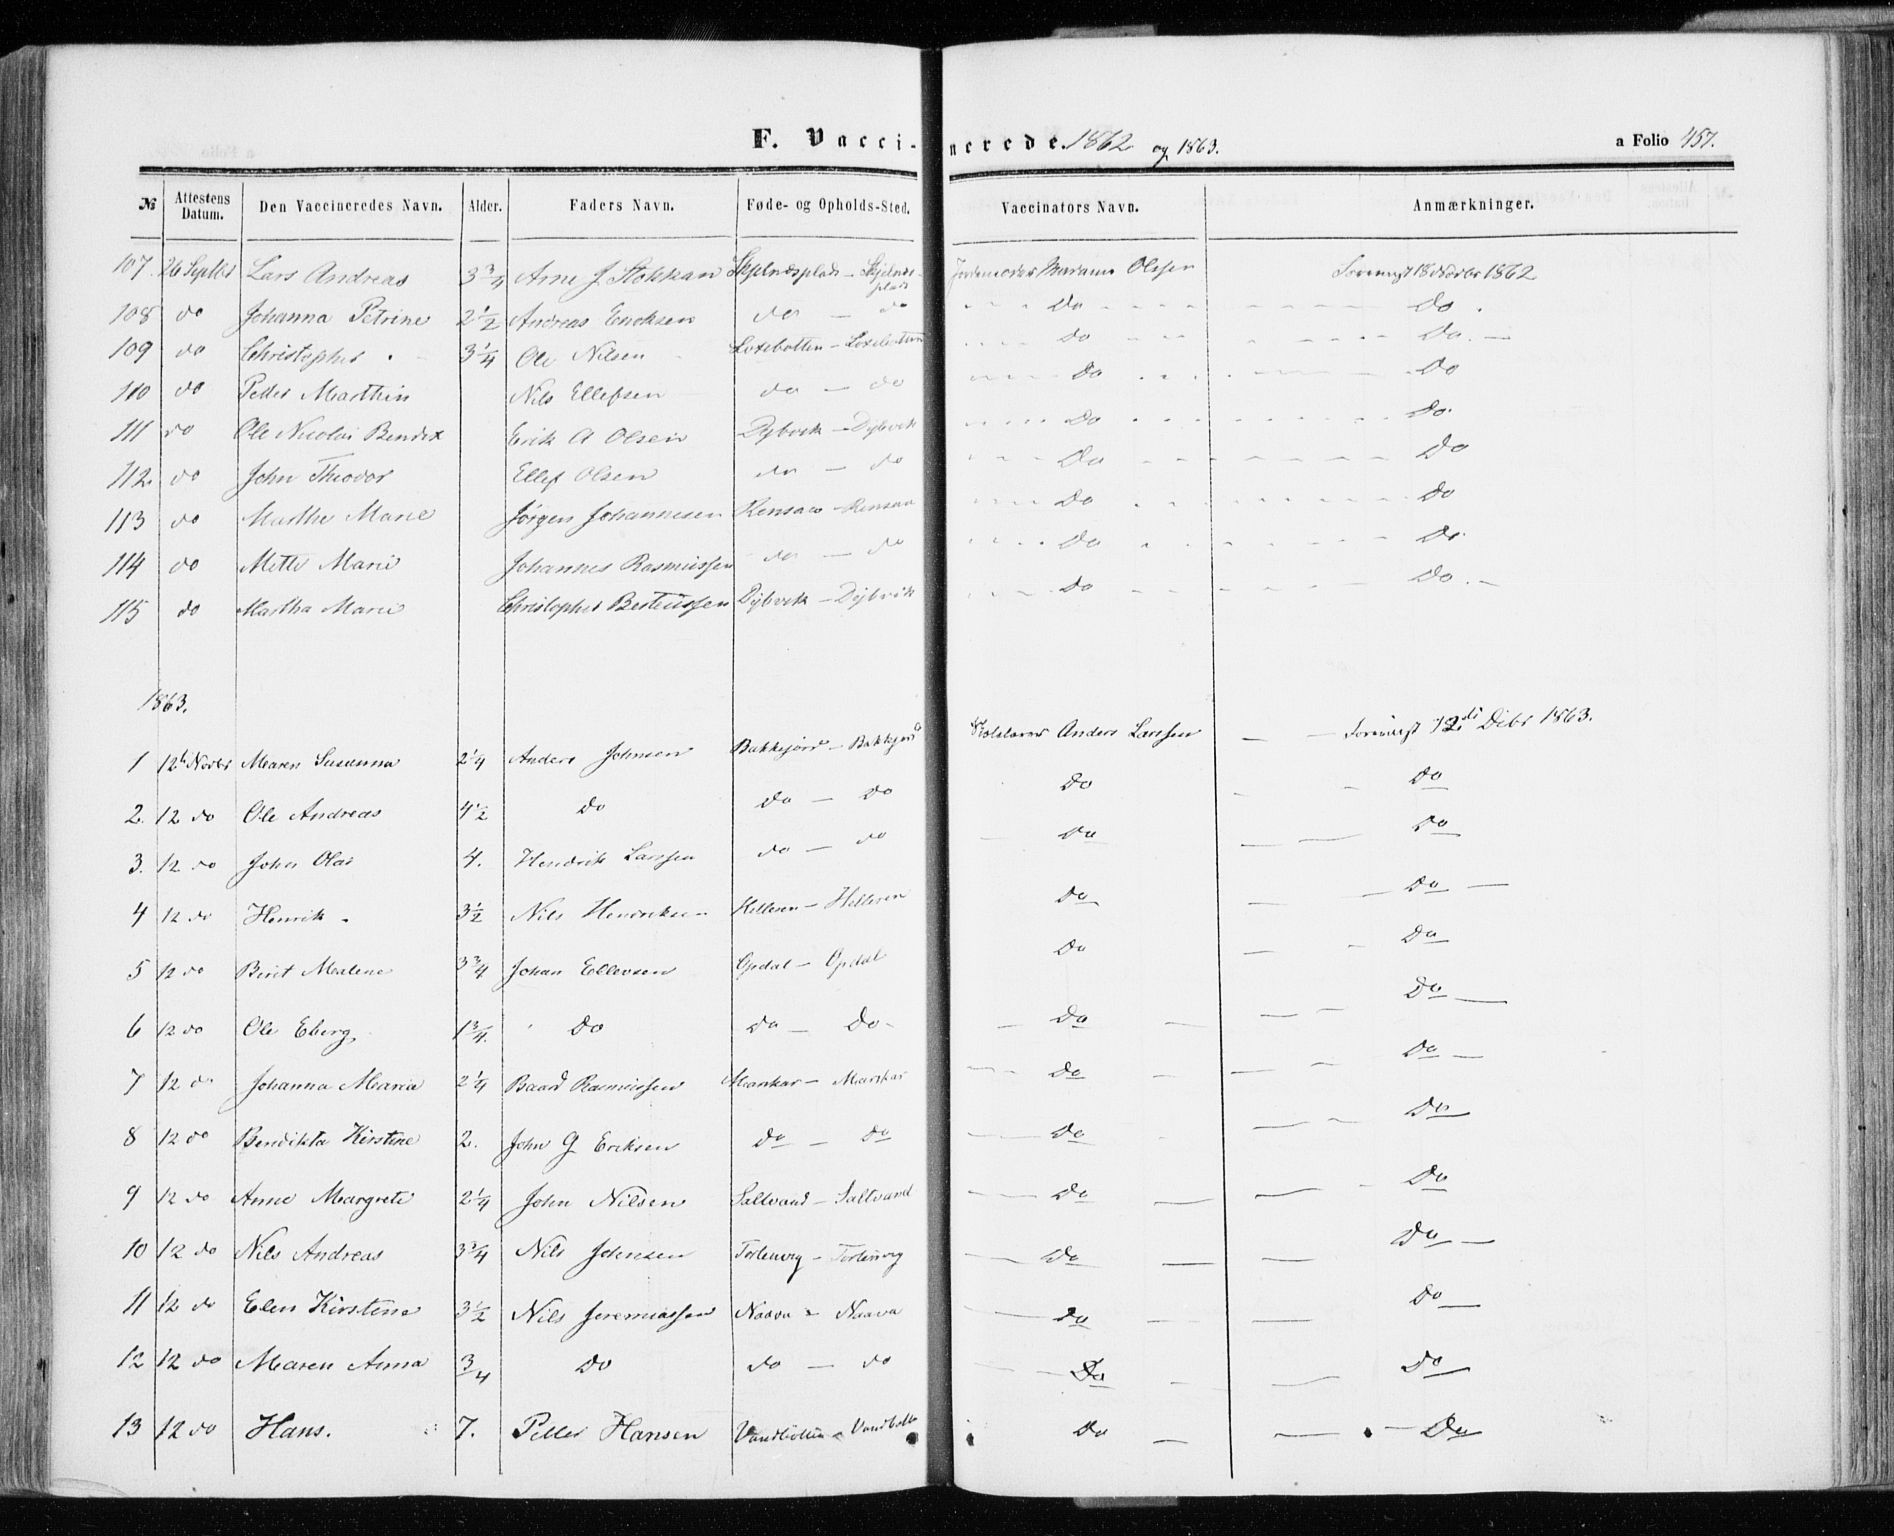 F. Vacci- nerede. 1862 og 1863. a Folio 457.
№ Attestens Datum. Den Vaccineredes Navn. Alder. Faders Navn. Føde- og Opholds-Sted. Vaccinators Navn. Anmærkninger.
107. 26 Septbr Lars Andreas 3 3/4 Arne J. Stokkan Jordemoder Madame Olssen 18 Novbr 1862
108 do Johanna Petrine 2 1/2 Andreas Ericksen do — do Do Do.
109 do Christopher 3 1/4 Ole Nilsen Do Do. —
110 do Peder Marthin Nils Ellefsen do — do Do Do
111 do Ole Nicolai Bendix Erik A Olsen Dybvik — Dybvik Do Do.
112. do John Theodor Ellef Olsen do — do Do Do
113 do Marthe Marie Jørgen Johannesen Rensaa — Rensaa Do Do
114 do Mette Marie Johannes Rasmussen do — do Do Do
115 do Martha Marie Christopher Dybvik — Dybvik Do Do. —
1863.
1 12te Novbr Maren Susanna 2 1/4 Anders Johnsen Bakkejord — Bakkejord Anders Larssen — — 1863.
2. 12 do Ole Andreas 4 1/2 Do do — do Do — — Do
3. 12 do John Olai 4. Hendrik Larssen do — do — Do — — Do
4 12 do Henrik 3 1/2 Nils Henriksen Helleren — Helleren Do — — Do —
5 12 do Berit Malene 3 3/4 Johan Ellevsen Opdal — Opdal Do — — Do
6 12 do Ole Eberg 1 3/4. Do do — Do — Do — — — Do —
7 12 do Johanna Maria 2 1/4 Baard Rasmussen — Do — — — Do —
8 12 do Bendikta Kirstine 2. John G Eriksen do — do — Do — — Do
9 12 do Anne Margrete 2 1/4 John Nilsen Saltvand — Saltvand — Do — — — Do
10 12 do Nils Andreas 3 3/4 Nils Johnsen — Do — — Do —
11 12 do Elen Kirstine 3 1/2 Nils Jeremiassen Naava — Naava Do — — Do —
12 12 do Maren Anna 3/4 Do do — do — Do — — Do
13 12 do Hans. 7. Peder Hansen Do — — — Do